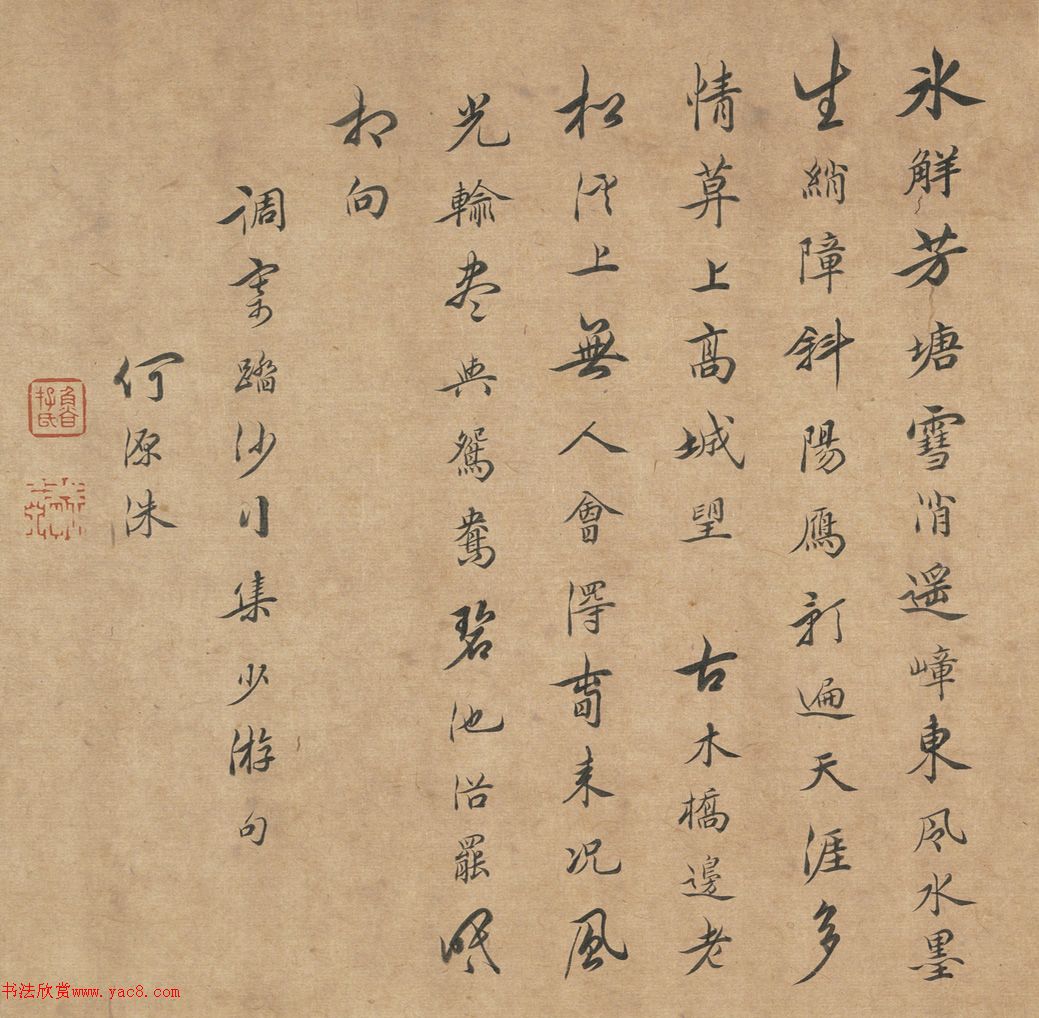 氷解芳塘雪消遥嶂東風水墨
生綃障斜陽鴈遍天涯多
情莫上高城望 古木橋邊老
松溪上無人會得春来况風
光輸盡與鴛鴦碧池浴罷眠
相向
調寄踏沙行集少游句
何源洙
书法欣赏www.yac8.com